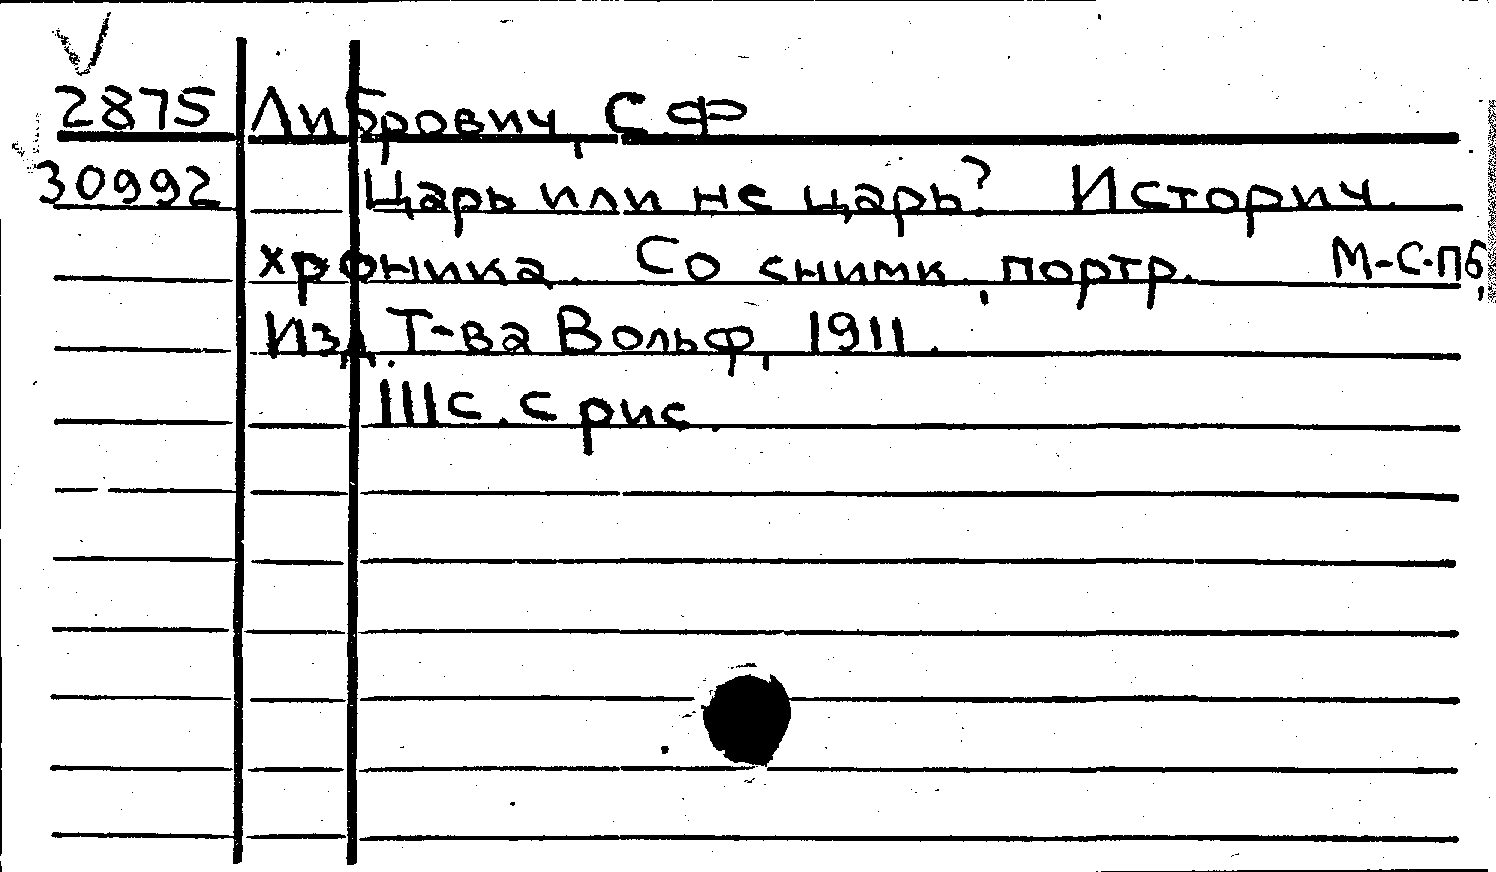 2875 Либрович, С Ф
30992 Царь или не царь? Историч.
хроника. Со снимк., портр. М-С-Пб,
Изд. Т-ва Вольф, 1911.
111с. с рис.